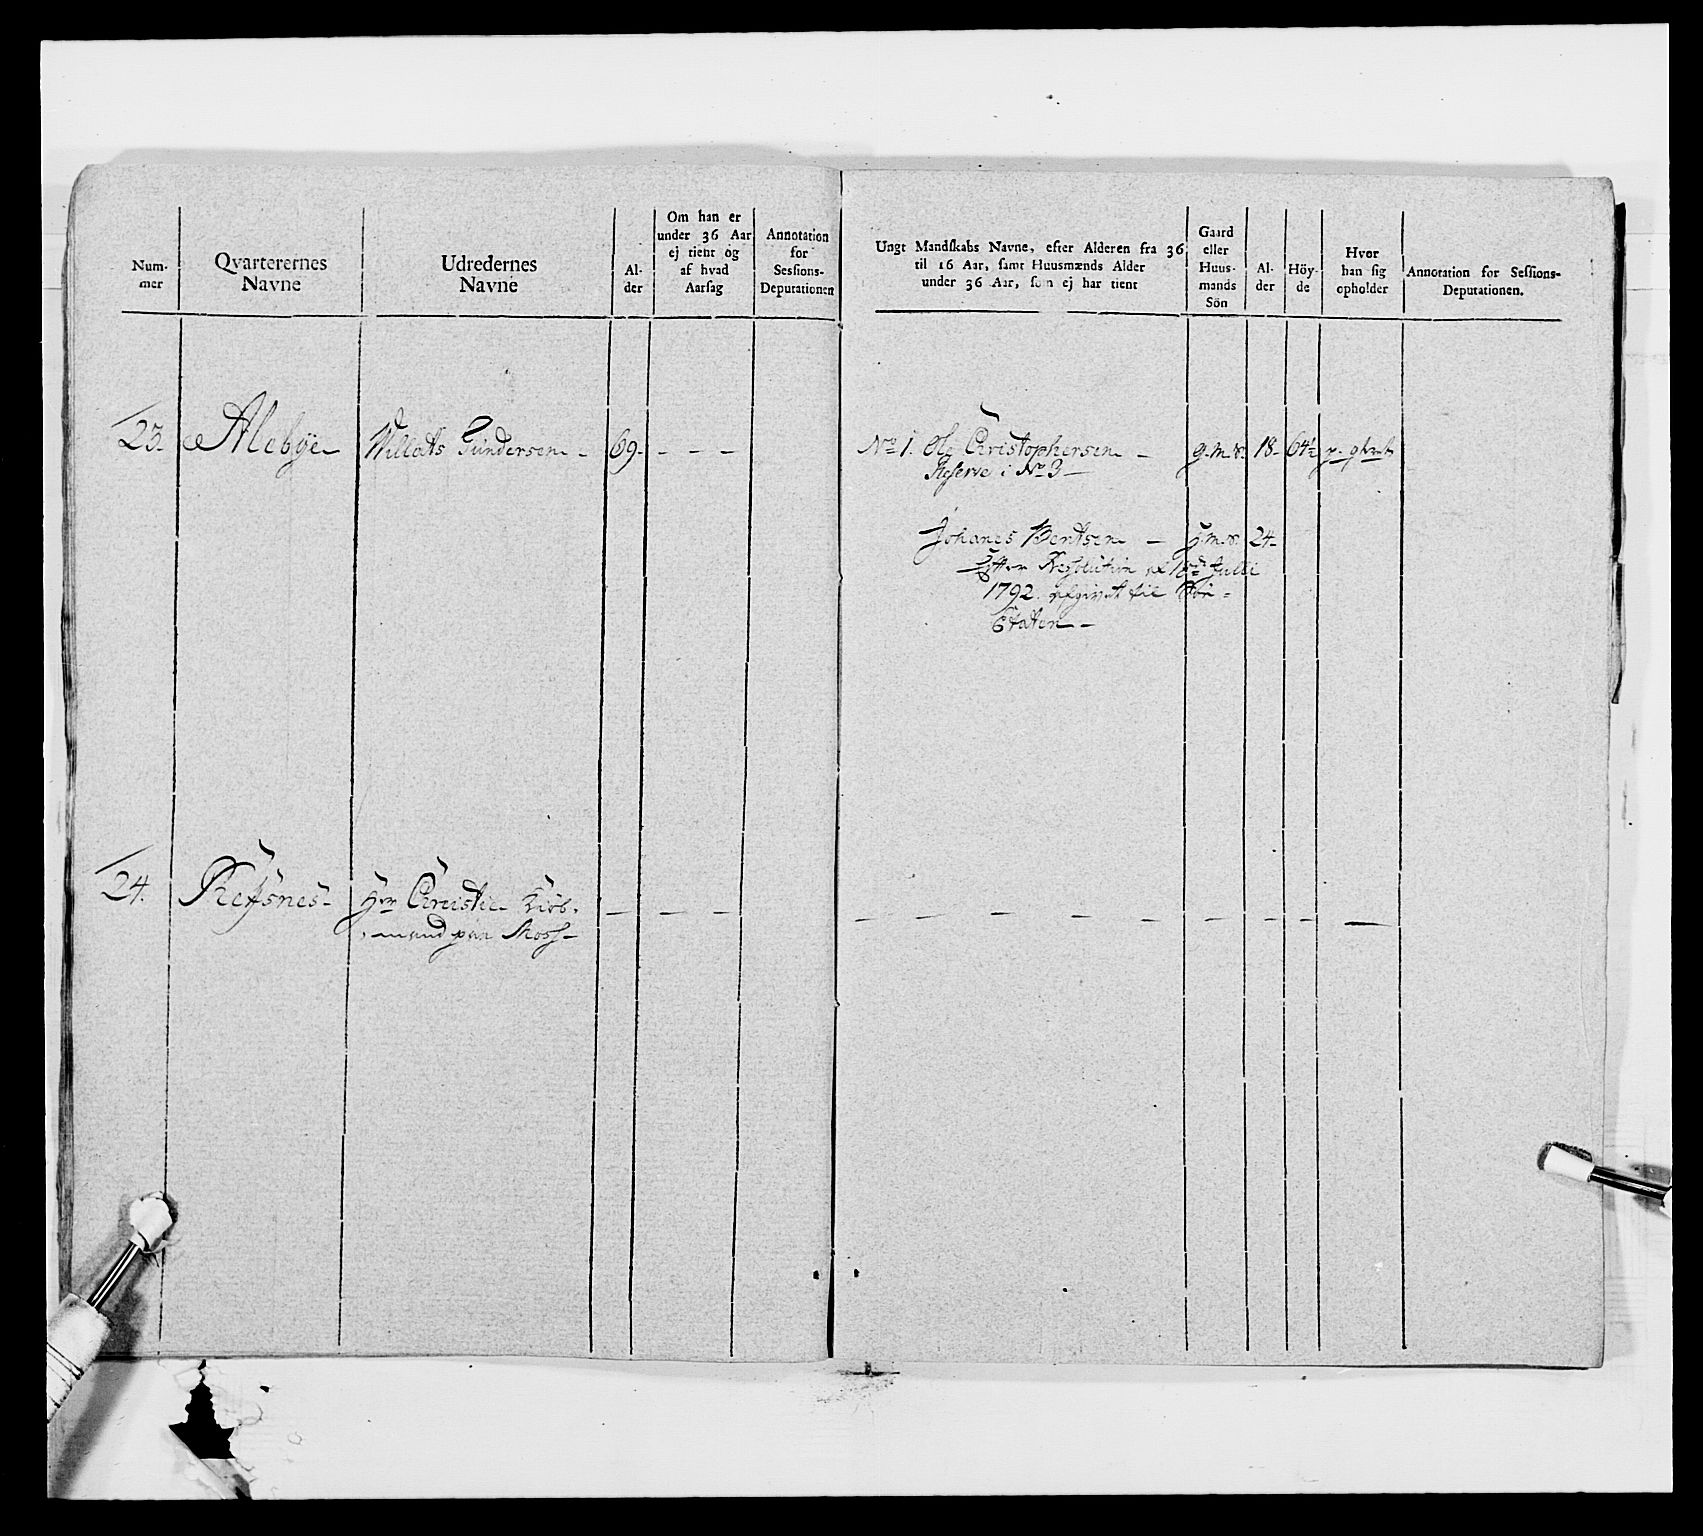 Num-
mer
Qvarterernes
Navne
Udredernes
Navne
Al-
der
Om han er
under 36 Aar
ej tient og
af hvad
Aarsag
Annotation
for
Sessions-
Deputationen
23. Alebye Willats Gundersen - 69. - - -
24. Refsnes Hr Christie Kiöb-
mand paa Moss
Ungt Mandskabs Navne, efter Alderen fra 36
til 16 Aar, samt Huusmænds Alder
under 36 Aar, som ej har tient
Gaard
eller
Huus-
mands
Sön
Al-
der
Höy-
de
Hvor
han sig
opholder
Annotation for Sessions-
Deputationen.
No 1. Ole Christophersen - g.m.s. 18- 64½
Reserve i No 3
Johanes Bentsen - h.m.s. 24-
Efter Resolution af Julli
1792. afgivet til Söe-
Etaten -